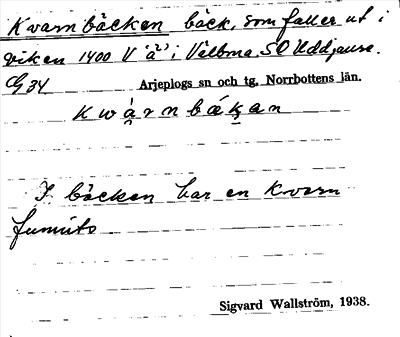 Kvarnbäcken bäck, som faller ut i
viken 1400 V "ä" i Välbma, SO Uddjaure.
G 34 Arjeplogs sn och tg, Norrbottens län.
kwà̱rnbákan
I bäcken har en kvarn
funnits
Sigvard Wallström, 1938.